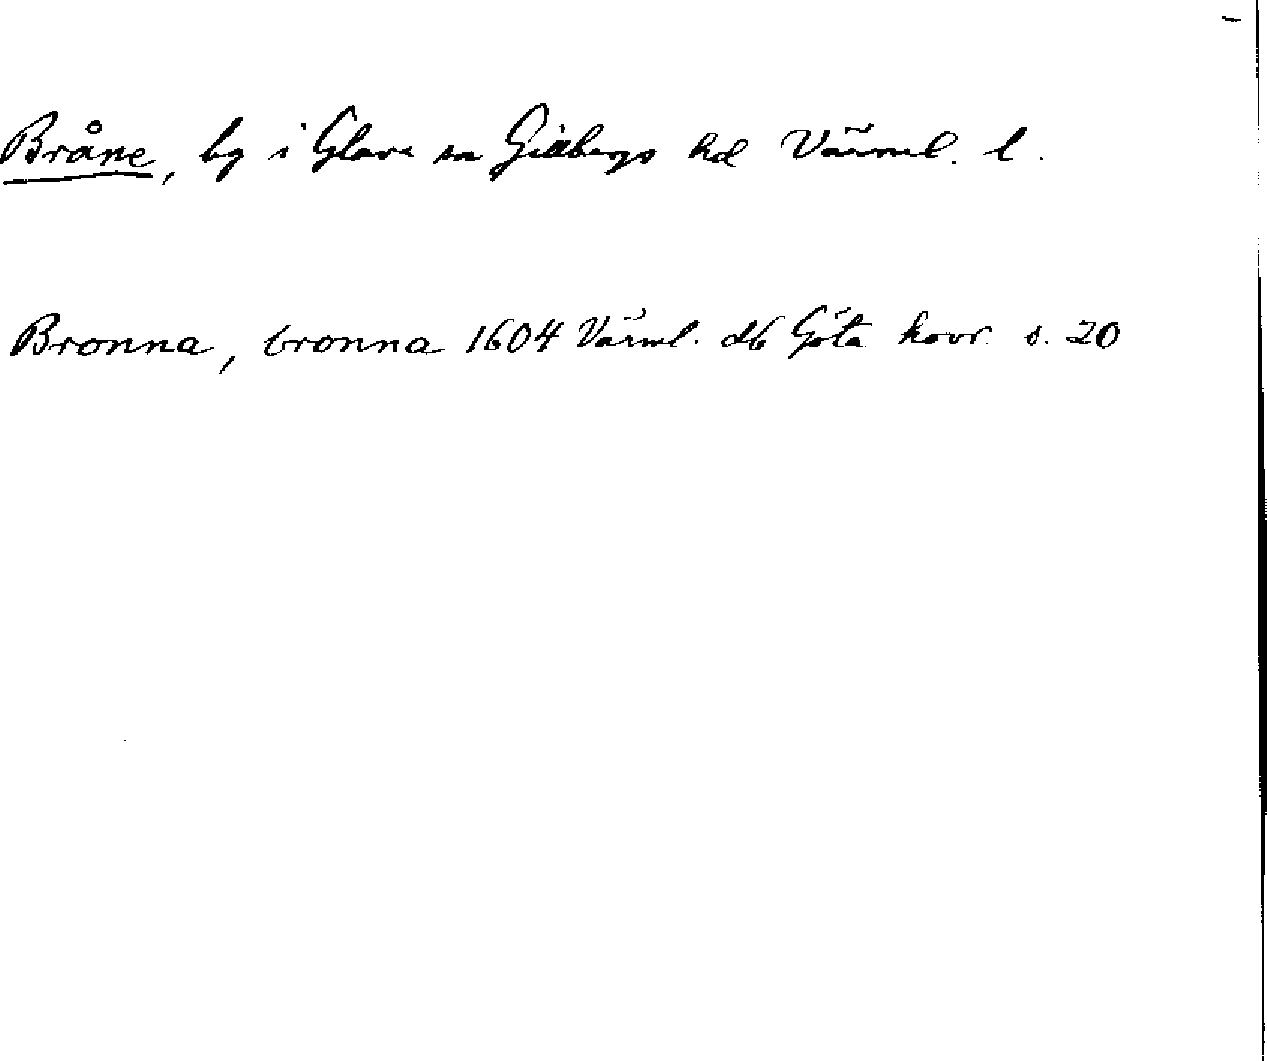 Bråne, by i Glava sn Gillbergs hd Värml. l.
Bronna, bronna 1604 Värml. db Göta hovr. s. 20